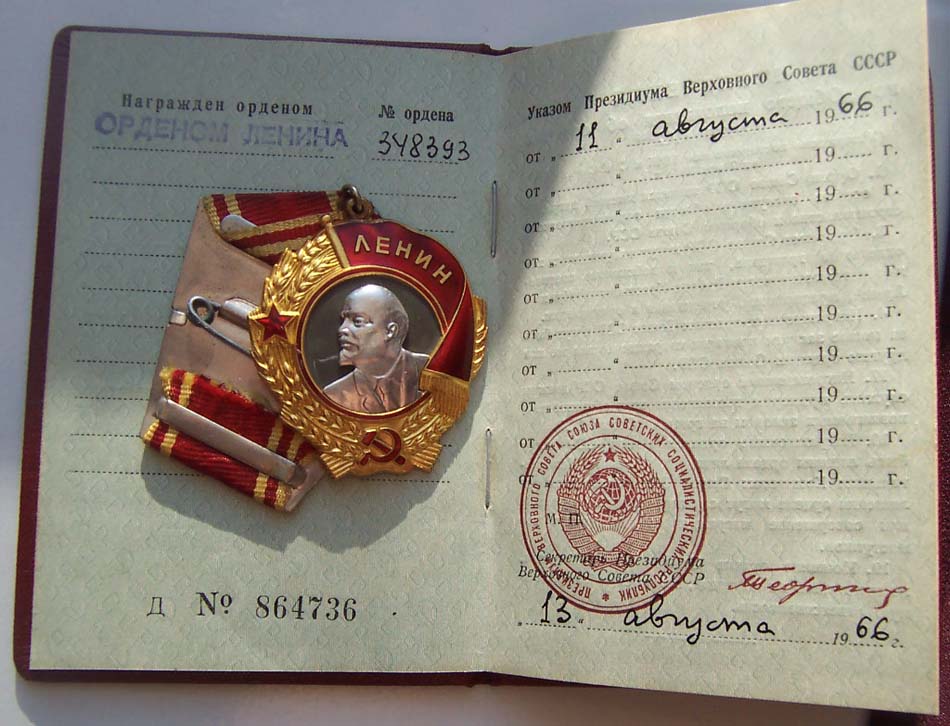 Награжден орденом
ОРДЕНОМ ЛЕНИНА
№ ордена
348393
ЛЕНИН
Д № 864736
Указом Президиума Верховного Совета СССР
от „ 11 “ августа 1966 г.
от „ “ 19 г.
от „ “ 19 г.
от „ “ 19 г.
от „ “ 19 г.
от „ “ 19 г.
от „ “ 19 г.
от „ “ 19 г.
от „ “ 19 г.
от „ “ 19 г.
ПРЕЗИДИУМ ВЕРХОВНОГО СОВЕТА СОЮЗА СОВЕТСКИХ СОЦИАЛИСТИЧЕСКИХ РЕСПУБЛИК
М. П.
Секретарь Президиума
Верховного Совета СССР
„ 13 “ августа 1966 г.